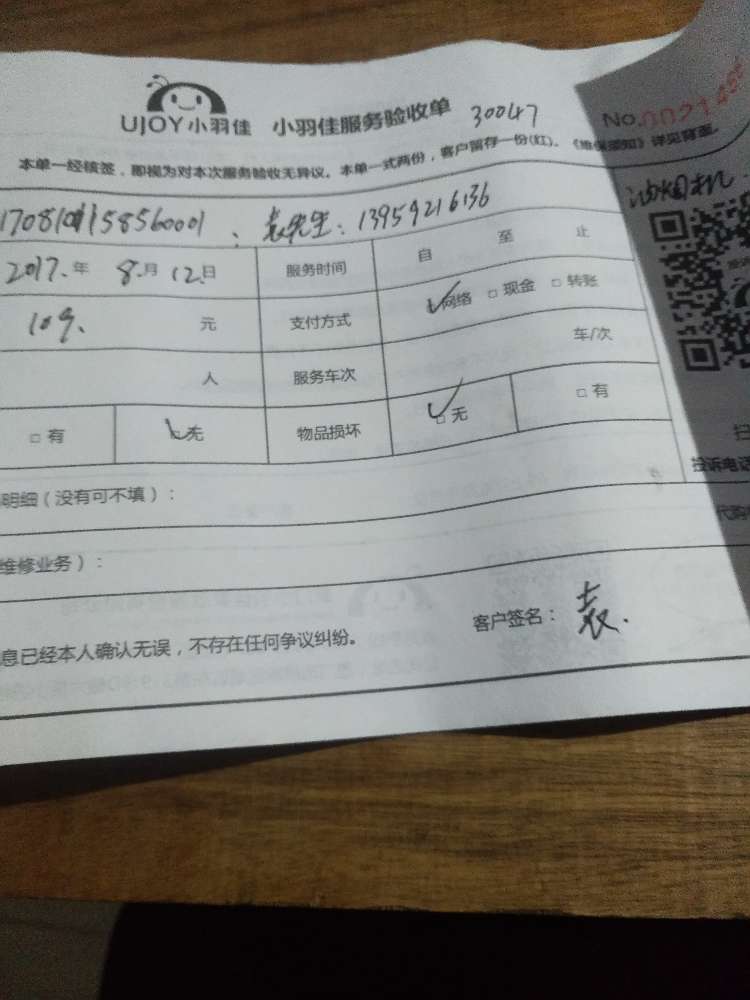 UJOY小羽佳 小羽佳服务验收单 30047
No.
本单一经核签，即视为对本次服务验收无异议。本单一式两份，客户留存一份(红)。《维保须知》详见背面。
袁先生：13959216136
油烟机
2017.年 8.月 12.日 服务时间 自 至 止
109. 元 支付方式 网络 □现金 □转账
人 服务车次 车/次
□有 □无 物品损坏 □无 □有
投诉电话
明细（没有可不填）：
代购
维修业务）：
息已经本人确认无误，不存在任何争议纠纷。 客户签名：袁.